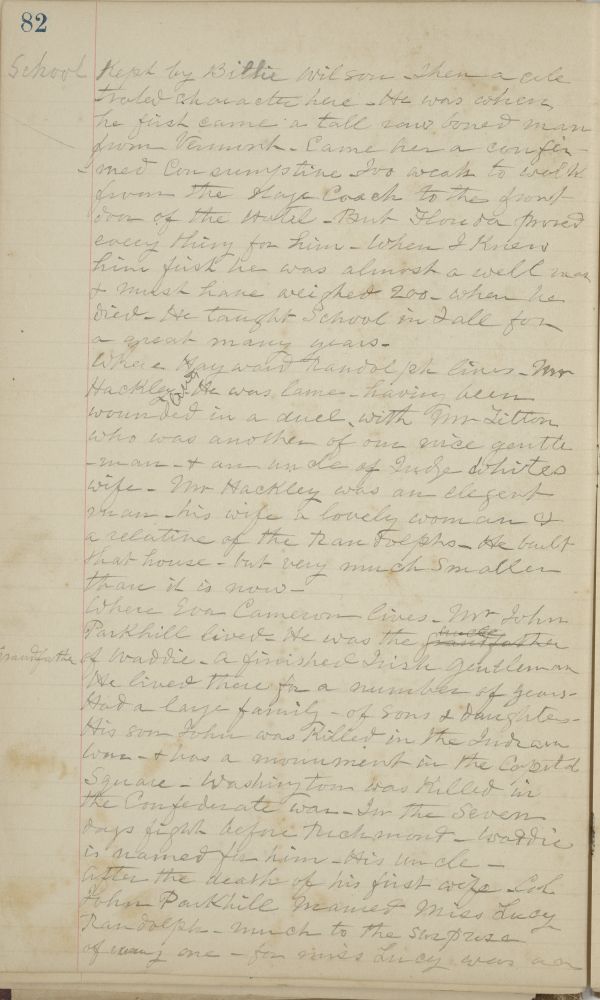 82
School Kept by Billie Wilson - Then a cele
brated character here - He was when
he first came a tall raw boned man
from Vermont - Came her a confir-
med Consumptive - Too weak to walk
from the Stage Coach to the front
door of the Hotel - But Florida proved
every thing for him - When I Knew
him first he was almost a well man
& must have weighed 200 - when he
died - He taught School in Tall for
a great many years -
Where Hayward Randolph lives - Mr
Hackley lived He was lame - having been
wounded in a duel, with Mr
who was another of our nice gentle
-man - & an uncle of Judge Whites
wife - Mr Hackley was an elegent
man - his wife a lovely woman &
a relative of the Randolphs - He built
that house - but very much smaller
than it is now -
Where Eva Cameron lives - Mr John
Parkhill lived - He was the grandfather uncle
grandfather of Waddie - a finished Irish gentleman
He lived there for a number of years -
Had a large family - of sons & daughters -
His son John was Killed in the Indian
War - & has a monument in the Capitol
Square - Washington was Killed in
the Confederate war - In the Seven
days fight before Richmond - Waddie
is named for him - His uncle -
After the death of his first wife - Col
John Parkhill Married Miss Lucy
Randolph - much to the surprise
of every one - for Miss Lucy was an